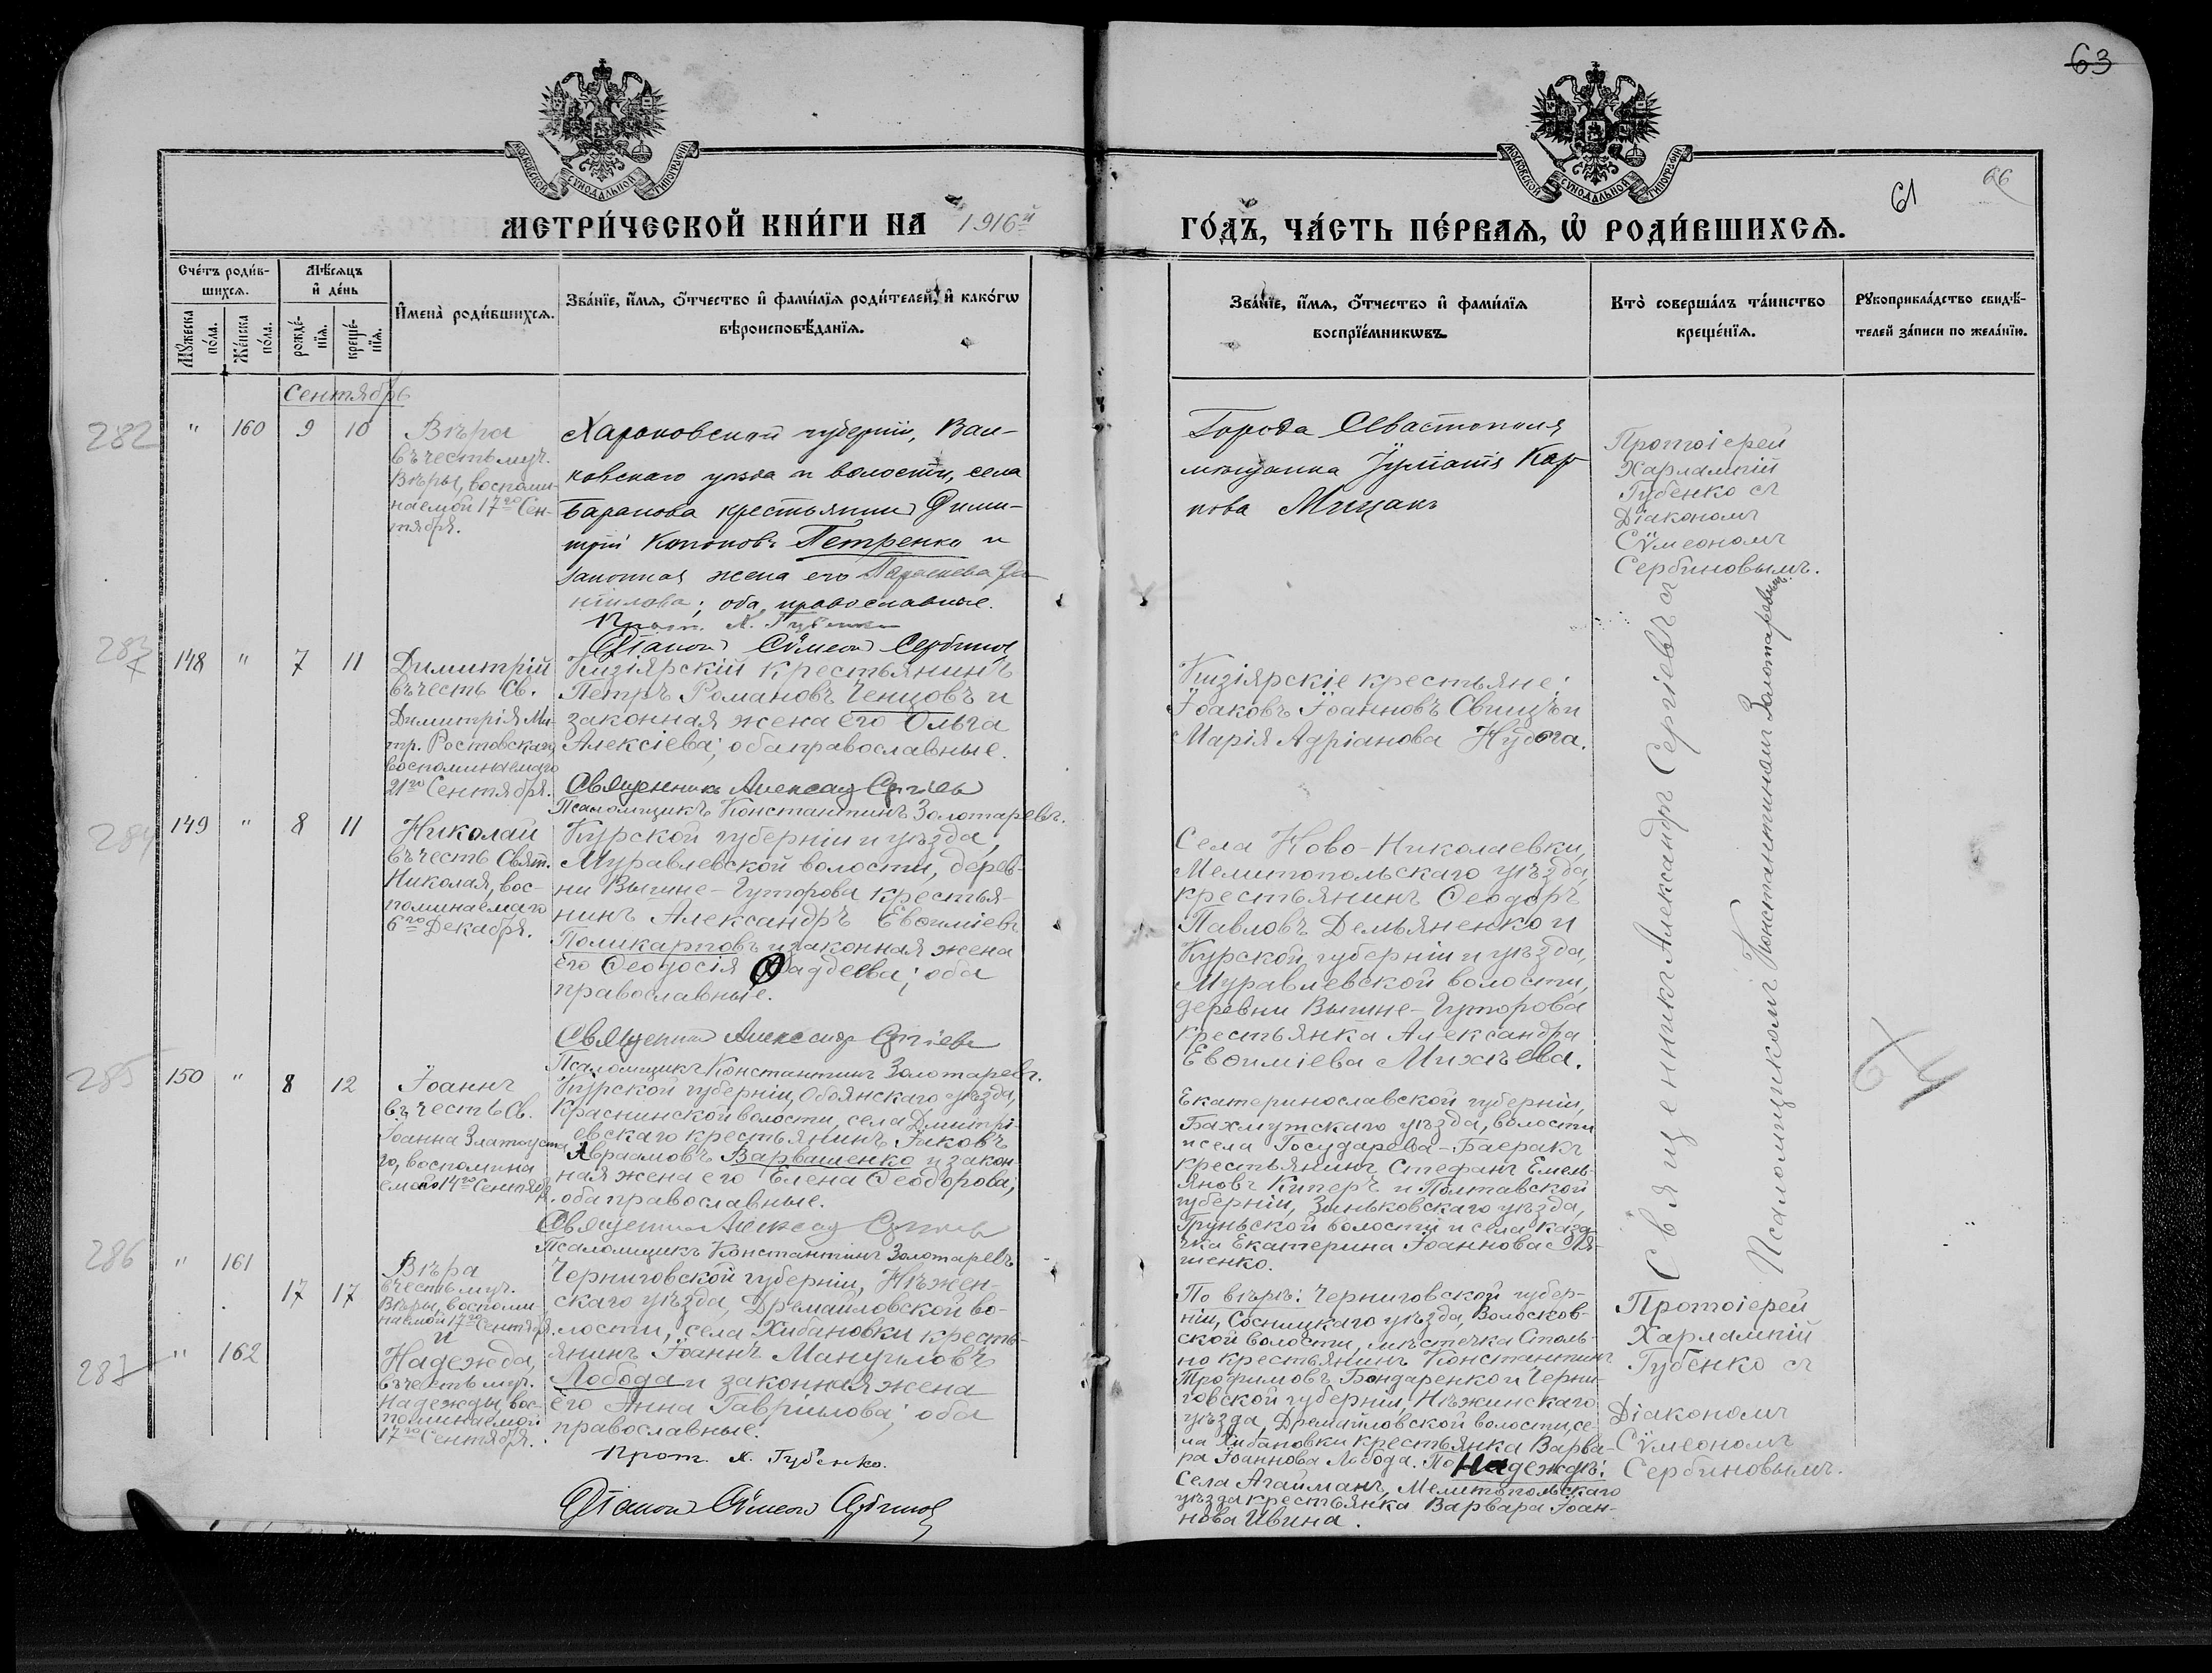 63
МОСКОВСКОЙ СѴНОДАЛЬНОЙ ТИПОГРАФІИ
МОСКОВСКОЙ СѴНОДАЛЬНОЙ ТИПОГРАФІИ
61
66
МЕТРИ́ЧЕСКОЙ КНИ́ГИ НА 1916й
ГО́ДЪ, ЧА́СТЬ ПЕ́РВАЯ, Ѡ РОДИ́ВШИХСЯ.
Сче́тъ роди́в-
шихся.
Мꙋжеска
по́ла.
Же́нска
по́ла.
Мѣ́сяцъ
и҆ де́нь
рожде́-
нїя.
креще́-
нїя.
И҆мена̀ роди́вшихся.
Зва́нїе, и҆́мя, ѻ҆́тчество и҆ фами́лїя роди́телей, и҆ како́гѡ
вѣроисповѣ́данїя.
Зва́нїе, и҆́мя, ѻ҆́тчество и҆ фами́лїя
воспрїе́мникѡвъ.
Кто̀ соверша́лъ та́инство
креще́нїя.
Рꙋкоприкла́дство свидѣ́-
телей за́писи по жела́нїю.
Сентябрь
282
" 160 9 10
Вѣра
въ честь муч.
Вѣры, воспоми-
наемой 17го Сен-
тября.
Харьковской губерніи, Вал-
ковскаго уѣзда и волости, села
Баранова крестьянинъ Дими-
трій Кононовъ Петренко и
законная жена его Параскева Да-
ніилова; оба православные.
Прот. Х. Губенко
Діаконъ Сѵмеонъ Сербиновъ
Города Севастополя
мѣщанка Іуліанія Кар-
пова Мицакъ
Протоіерей
Харлампій
Губенко съ
Діакономъ
Сѵмеономъ
Сербиновымъ.
283
148 " 7 11
Димитрій
въ честь Св.
Димитрія Ми-
тр. Ростовскаго
воспоминаемаго
21го Сентября.
Кизіярскій крестьянинъ
Петръ Романовъ Ченцовъ и
законная жена его Ольга
Алексіева; оба православные.
Священникъ Александръ Сергіевъ
Псаломщикъ Константинъ Золотаревъ.
Кизіярскіе крестьяне:
Іоаковъ Іоанновъ Свищъ и
Марія Адріанова Нудьга.
284
149 " 8 11
Николай
въ честь Свят.
Николая, вос-
поминаемаго
6го Декабря.
Курской губерніи и уѣзда,
Муравлевской волости, дерев-
ни Выгине-Гуторова крестья-
нинъ Александръ Евѳиміевъ
Поликарповъ и законная жена
его Ѳеодосія Ѳаддеева; оба
православные.
Священникъ Александръ Сергіевъ
Псаломщикъ Константинъ Золотаревъ.
Села Ново-Николаевки,
Мелитопольскаго уѣзда,
крестьянинъ Ѳеодоръ
Павловъ Демьяненко и
Курской губерніи и уѣзда,
Муравлевской волости,
деревни Выгине-Гуторова
крестьянка Александра
Евѳиміева Михѣева.
Священникъ Александръ Сергіевъ съ
Псаломщикомъ Константиномъ Золотаревымъ.
285
150 " 8 12
Іоаннъ
въ честь Св.
Іоанна Златоуста-
го, воспомина-
емаго 14го Сентября.
Курской губерніи, Обоянскаго уѣзда,
Краснинской волости, села Дмитрі-
евскаго крестьянинъ Іаковъ
Авраамовъ Варвашенко и закон-
ная жена его Елена Ѳеодорова;
оба православные.
Священникъ Александръ Сергіевъ
Псаломщикъ Константинъ Золотаревъ
Екатеринославской губерніи,
Бахмутскаго уѣзда, волости
и села Государева-Баеракъ
крестьянинъ Стефанъ Емель-
яновъ Киперъ и Полтавской
губерніи, Зиньковскаго уѣзда,
Груньской волости и села каза-
чка Екатерина Іоаннова Ля-
шенко.
286
" 161
17 17
Вѣра
въ честь муч.
Вѣры, воспоми-
наемой 17го Сентября.
и
287
" 162
Надежда,
въ честь муч.
Надежды, вос-
поминаемой
17го Сентября.
Черниговской губерніи, Нѣжен-
скаго уѣзда, Дремайловской во-
лости, села Хибановки кресть-
янинъ Іоаннъ Мануиловъ
Лобода и законная жена
его Анна Гавріилова; оба
православные.
Прот. Х. Губенко.
Діаконъ Сѵмеонъ Сербиновъ
По вѣрѣ: Черниговской губер-
ніи, Сосницкаго уѣзда, Волосков-
ской волости, мѣстечка Столь-
но крестьянинъ Константинъ
Трофимовъ Бондаренко и Черни-
говской губерніи, Нѣжинскаго
уѣзда, Дремайловской волости, се-
ла Хибановки крестьянка Варва-
ра Іоаннова Лобода. По Надеждѣ:
Села Агайманъ, Мелитопольскаго
уѣзда крестьянка Варвара Іоан-
нова Ивина.
Протоіерей
Харлампій
Губенко съ
Діакономъ
Сѵмеономъ
Сербиновымъ.